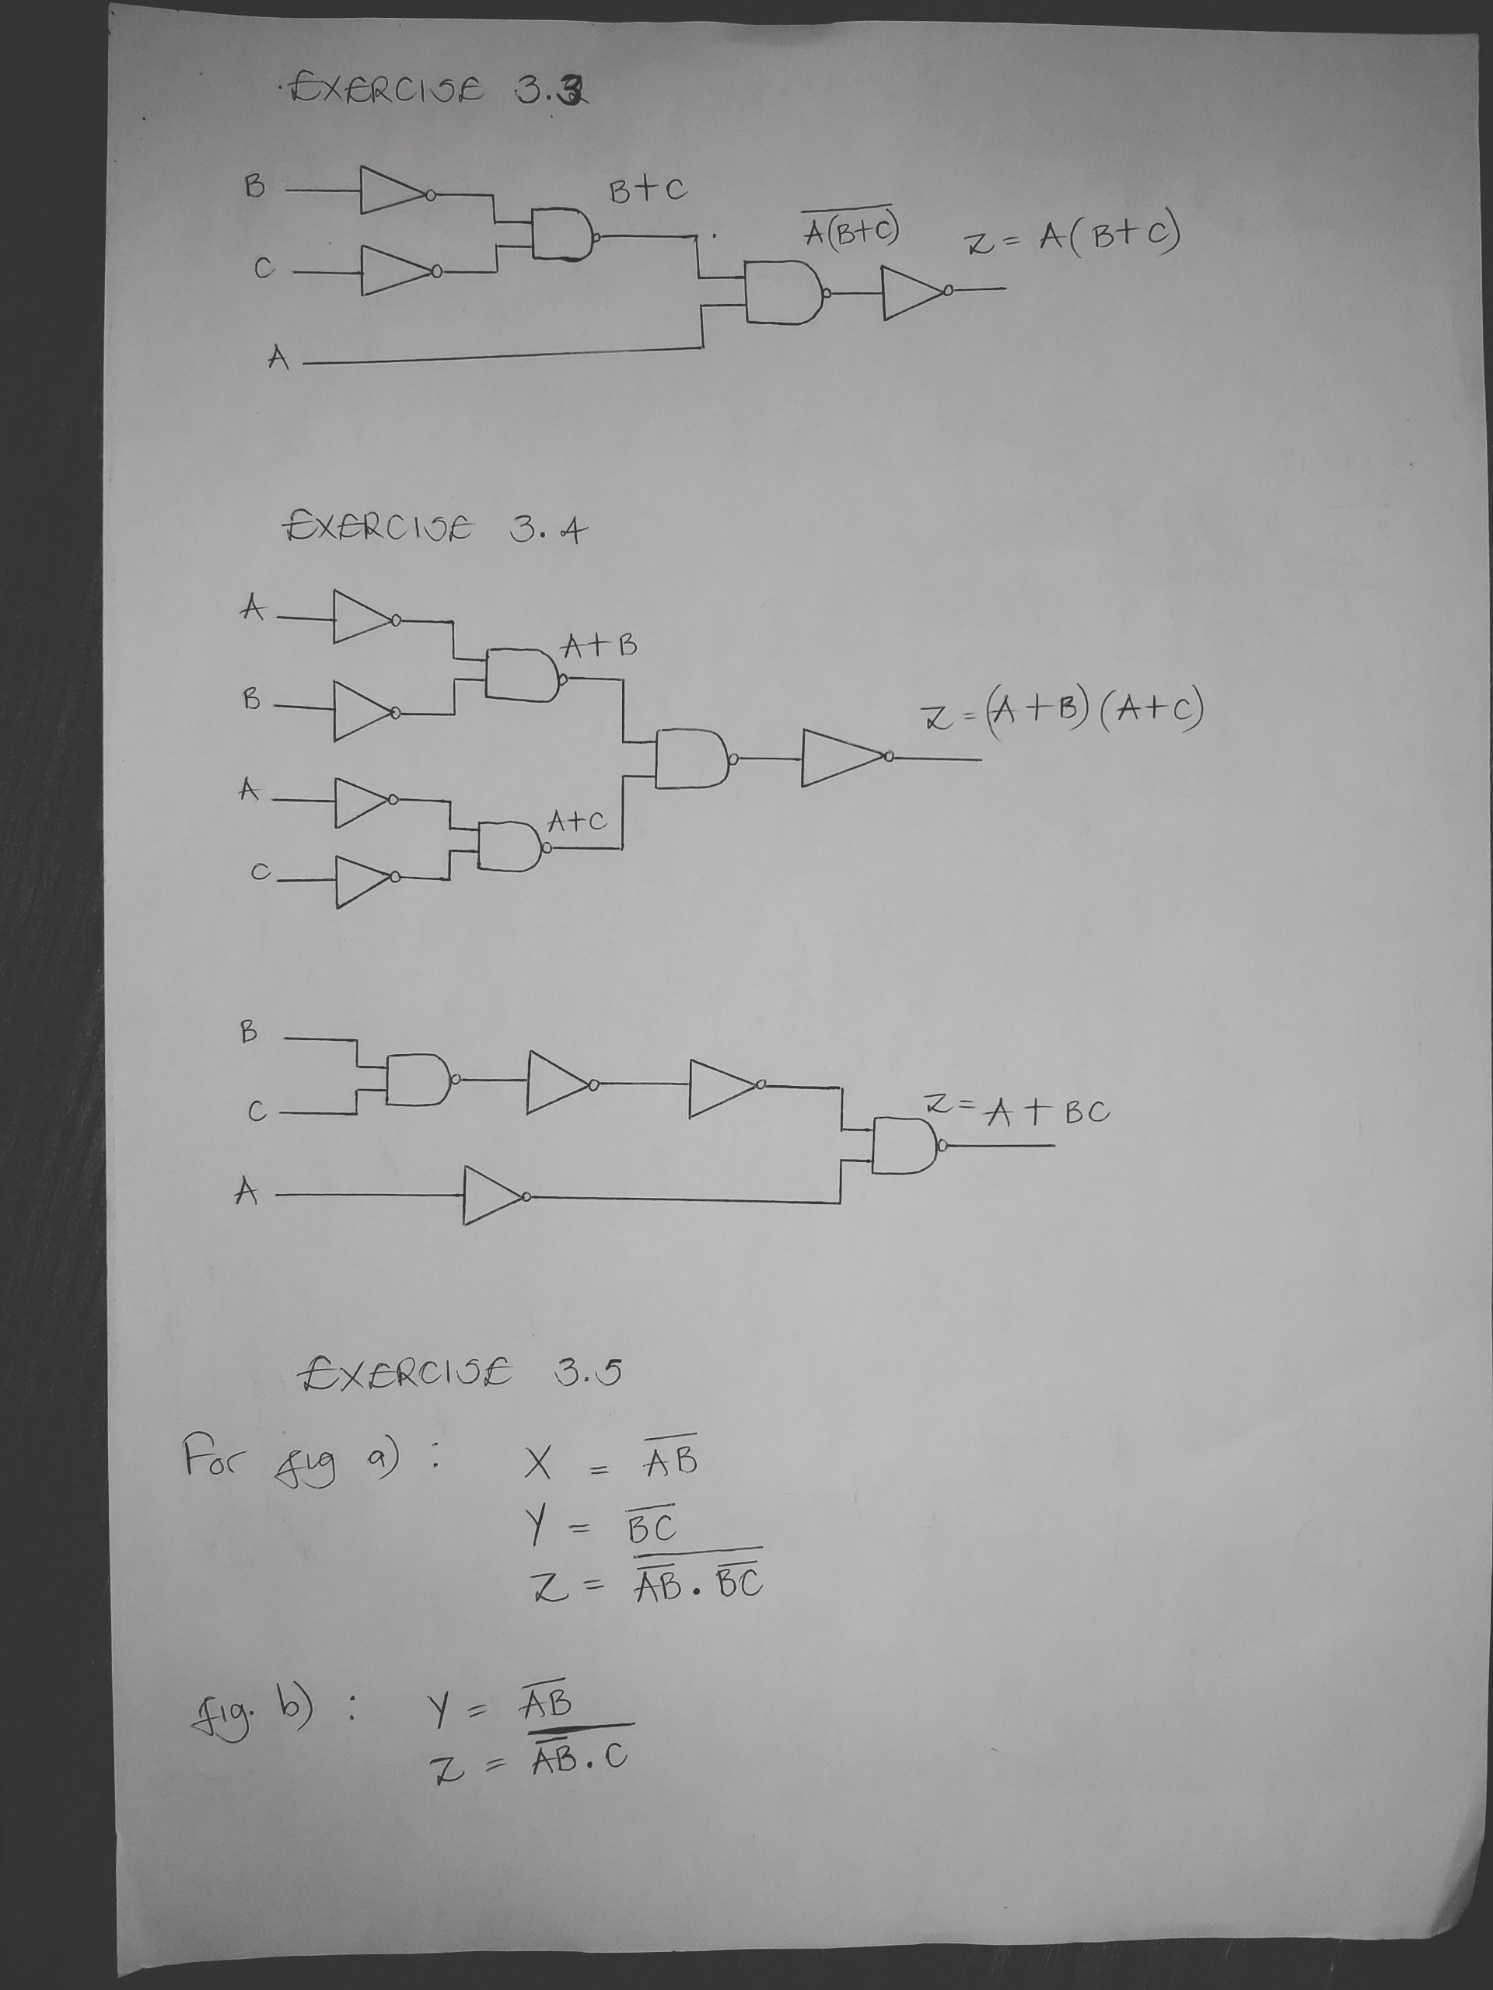 EXERCISE 3.3
B
B+C
C
A̅(̅B̅+̅C̅)̅
Z = A(B+C)
A
EXERCISE 3.4
A
A+B
B
Z = (A+B)(A+C)
A
A+C
C
B
C
Z = A + BC
A
EXERCISE 3.5
For fig a) : X = A̅B̅
Y = B̅C̅
Z = \overline{\overline{AB} . \overline{BC}}
fig. b) : Y = A̅B̅
Z = \overline{\overline{AB} . C}